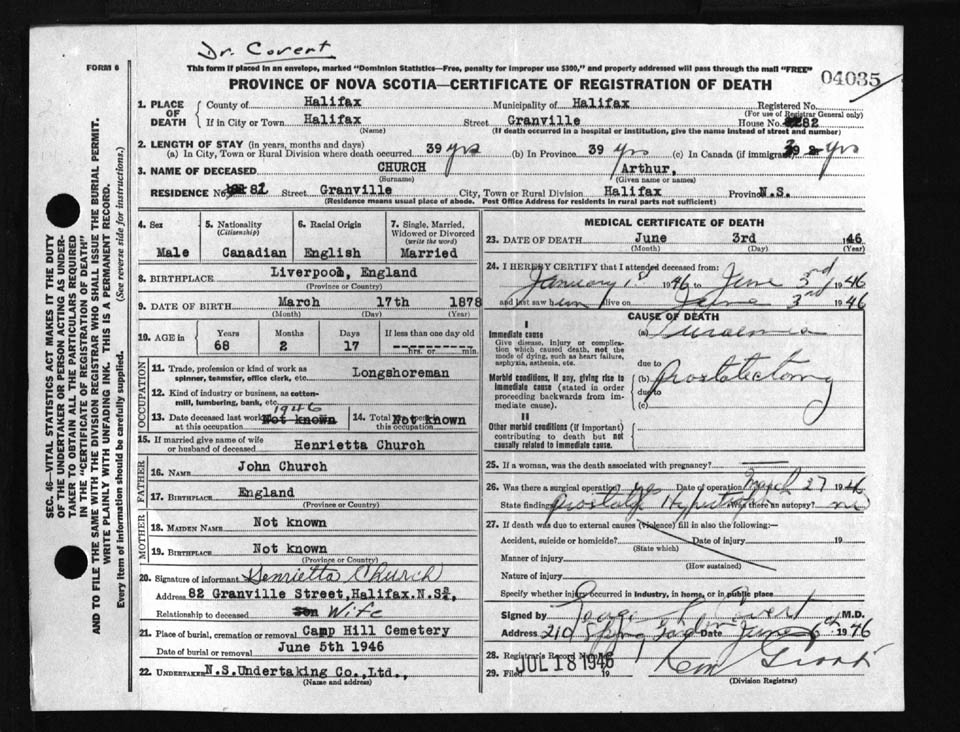 Dr. Covert
FORM 6
This form if placed in an envelope, marked "Dominion Statistics—Free, penalty for improper use $300," and properly addressed will pass through the mail "FREE"
04035
PROVINCE OF NOVA SCOTIA—CERTIFICATE OF REGISTRATION OF DEATH
1. PLACE OF DEATH
County of Halifax Municipality of Halifax Registered No.
(For use of Registrar General only)
If in City or Town Halifax Street Granville House No. 82
(Name) (If death occurred in a hospital or institution, give the name instead of street and number)
2. LENGTH OF STAY (in years, months and days)
(a) In City, Town or Rural Division where death occurred 39 yrs (b) In Province 39 yrs (c) In Canada (if immigrant) 39 yrs
3. NAME OF DECEASED CHURCH Arthur,
(Surname) (Given name or names)
RESIDENCE No. 82 Street Granville City, Town or Rural Division Halifax Province N.S.
(Residence means usual place of abode. Post Office Address for residents in rural parts not sufficient)
4. Sex Male
5. Nationality (Citizenship) Canadian
6. Racial Origin English
7. Single, Married, Widowed or Divorced (write the word) Married
8. BIRTHPLACE Liverpool, England
(Province or County)
9. DATE OF BIRTH March 17th 1878
(Month) (Day) (Year)
10. AGE in Years 68 Months 2 Days 17 If less than one day old hrs. or min.
OCCUPATION
11. Trade, profession or kind of work as spinner, teamster, office clerk, etc. Longshoreman
12. Kind of industry or business, as cotton-mill, lumbering, bank, etc.
13. Date deceased last worked at this occupation 1946 Not known
14. Total years spent in this occupation Not known
15. If married give name of wife or husband of deceased Henrietta Church
FATHER
16. NAME John Church
17. BIRTHPLACE England
(Province or Country)
MOTHER
18. MAIDEN NAME Not known
19. BIRTHPLACE Not known
(Province or Country)
20. Signature of informant Henrietta Church
Address 82 Granville Street, Halifax. N.S.,
Relationship to deceased Son Wife
21. Place of burial, cremation or removal Camp Hill Cemetery
Date of burial or removal June 5th 1946
22. UNDERTAKER N.S. Undertaking Co., Ltd.,
(Name and address)
MEDICAL CERTIFICATE OF DEATH
23. DATE OF DEATH June 3rd 1946
(Month) (Day) (Year)
24. I HEREBY CERTIFY that I attended deceased from:
January 1st 1946 to June 3rd 1946
and last saw him alive on June 3rd 1946
CAUSE OF DEATH
I
Immediate cause
Give disease, injury or complication which caused death, not the mode of dying, such as heart failure, asphyxia, asthenia, etc.
(a) Uraemia
due to
Morbid conditions, if any, giving rise to immediate cause (stated in order proceeding backwards from immediate cause).
(b) Prostatectomy
due to
(c)
II
Other morbid conditions (if important) contributing to death but not causally related to immediate cause.
25. If a woman, was the death associated with pregnancy?
26. Was there a surgical operation? yes Date of operation March 27 1946
State findings Prostatic Was there an autopsy? no
27. If death was due to external causes (violence) fill in also the following:—
Accident, suicide or homicide? Date of injury 19
(State which)
Manner of injury
(How sustained)
Nature of injury
Specify whether injury occurred in industry, in home, or in public place
Signed by Covert M.D.
Address 210 Spring Gard Date June 6th 1946
28. Registrar's Record Number
29. Filed JUL 18 1946 19
(Division Registrar)
SEC. 46—VITAL STATISTICS ACT MAKES IT THE DUTY
OF THE UNDERTAKER OR PERSON ACTING AS UNDERTAKER
TO OBTAIN ALL THE PARTICULARS REQUIRED
IN THE "CERTIFICATE OF REGISTRATION OF DEATH"
AND TO FILE THE SAME WITH THE DIVISION REGISTRAR WHO SHALL ISSUE THE BURIAL PERMIT.
WRITE PLAINLY WITH UNFADING INK. THIS IS A PERMANENT RECORD.
Every item of information should be carefully supplied. (See reverse side for instructions.)